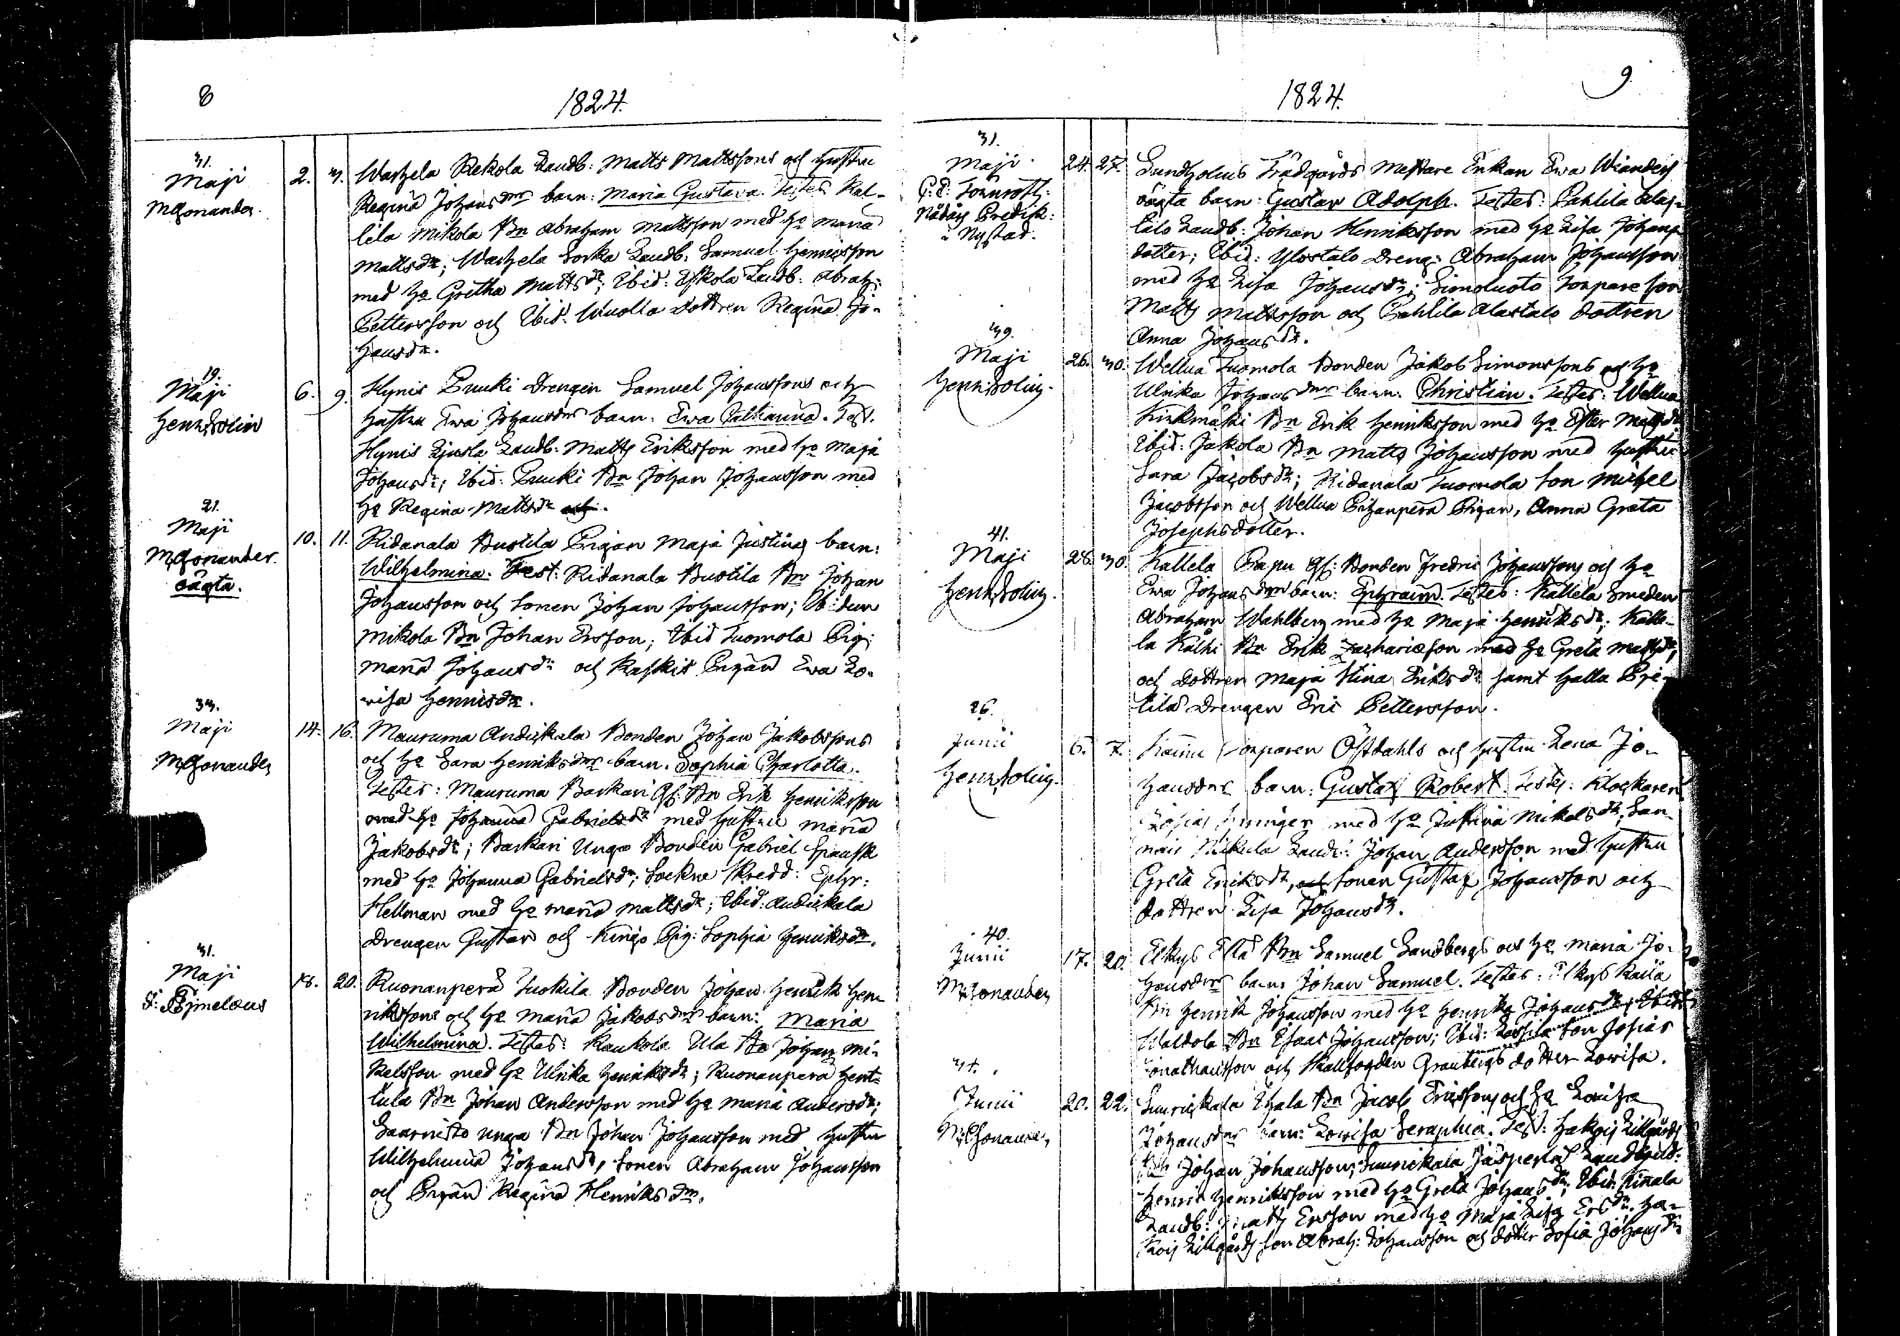 8
1824.
31.
Maji
M. Monander.
2. 3. Warhela Rekola Landb: Matts Mattssons och hustru
Regina Johansdrs barn: Maria Gustava. Testes Kal-
lila Mikola Bn Abraham Mattsson med Ho Maria
Mattsdr; Warhela Sorka Landb: Samuel Hendersson
med Ho Gretha Mattsdr; Ibid: Eskola Landb: Abrah:
Pettersson och Ibid. Wuolla dottren Regina Jo-
hansdr.
19.
Maji
Henr. Polin
6. 9. Hynis Puuki Drengen Samuel Johanssons och
hustru Ewa Johansdrs barn. Ewa Catharina. Test.
Hynis Landb: Matts Eriksson med Ho Maja
Johansdr; Ibid: Puuki Bn Johan Johansson med
Ho Regina Mattsdr och.
21.
Maji
M. Monander.
oägta.
10. 11. Ridanala Bustila Pigan Maja Justinas barn:
Wilhelmina. Test: Ridanala Bustila Bn Johan
Johansson och Sonen Johan Johansson; Ibidem
Mikola Bn Johan Ersson; Ibid Tuomola Pig:
Maria Johansdr och Kaskis Pigan Ewa Lo-
visa Hennisdr.
33.
Maji
M. Monander
14. 16. Mauruma Andickala Bonden Johan Jakobssons
och Ho Sara Henriksdrs barn. Sophia Charlotta.
Testes: Mauruma Barkari Gl: Bn Erik Henriksson
med Ho Johanna Gabrielsdr med hustru Maria
Jakobsdr; Barkari Unga Bonden Gabriel
med Ho Johanna Gabrielsdr; Sockne Skredd: Ephr:
Hellman med Ho Maria Mattsdr; Ibid: Andickala
Drengen Gustav och Pig: Sophia Henriksdr.
31.
Maji
18. 20. Kuonanperä Tuokila Bonden Johan Henrik Hen-
rikssons och Ho Maria Jakobsdrs barn: Maria
Wilhelmina. Testes: Kaukola Ula Bn Johan Mi-
kelsson med Ho Ulrika Henriksdr; Kuonanperä Hent-
tula Bn Johan Andersson med Ho Maria Andersdr;
Saarnisto unga Bn Johan Johansson med Hustru
Wilhelmina Johansdr, Sonen Abraham Johansson
och Pigan Regina Henriksdr.
1824.
9
31.
Maji.
Nådårs Predik:
i Nystad.
24. 27. Sundholms Trädgårds Mästare Enkan Ewa Wianders
oägta barn: Gustav Adolph. Testes: Pahlila Alas-
talo Landb: Johan Henriksson med Ho Lisa Johans-
dotter; Ibid: Ylöstalo Dreng: Abraham Johansson
med Ho Lisa Johansdr; Simoluoto Torpare son
Matts Mattsson och Pahlila Alastalo dottren
Anna Johansdr.
39.
Maji
Henr. Polin.
26. 30. Wellua Tuomola Bonden Jakob Simonssons och Ho
Ulrika Johansdrs barn. Christian. Testes: Wellua
Kirkmäki Bn Erik Henriksson med Ho Ester Mattsdr
Ibid: Jakola Bn Matts Johansson med hustru
Sara Jacobsdr; Ridanala Tuomola Son Michel
Jacobsson och Wellua Pitkanperä Pigan, Anna Greta
Josephsdotter.
41.
Maji
Henr. Polin.
28. 30. Kallela Papu Gl: Bonden Fredric Johanssons och Ho
Ewa Johansdrs barn: Ephraim. Testes: Kallela Smeden
Abraham Wahlberg med Ho Maja Henriksdr; Kalle-
la Kähi Bn Erik Zachariæson med Ho Greta Mattsdr,
och Dottren Maja Stina Eriksdr samt Halla Pri-
lila Drengen Eric Pettersson.
26.
Junii
Henr. Polin.
6. 7. Torparen Östdahls och hustru Lena Jo-
hansdrs barn: Gustaf Robert. Testes: Klockaren
med Ho Justina Mikelsdr; San-
nais Mikula Landb: Johan Andersson med hustru
Greta Eriksdr, och Sonen Gustaf Johansson och
dottren Lisa Johansdr.
40.
Junii
M. Monander
17. 20. Elkys Esta Bn Samuel Sandbergs och Ho Maria Jo-
hansdrs barn Johan Samuel. Testes: Elkys Kaila
Bn Henrik Johansson med Ho Henrika Johansdr; Ibid:
Waldola Bn Esaas Johansson; Ibid: son Josias
Jonathansson och Skallfogden Granbergs dotter Lovisa.
34.
Junii
M. Monander
20. 22. Suurickala Uhala Bn Jacob Ericssons och Ho Lovisa
Johansdrs barn: Lovisa Seraphia. Test: Hakois Lillgårds
Bn Johan Johansson; Suurickala Jasperla Landbond:
Henric Henriksson med Ho Greta Johansdr; Ibid: Kinala
Landb: Matts Ersson med Ho Maja Lisa Ersdr. Ha-
kois Lillgårds son Abrah: Johansson och dotter Sofia Johansdr